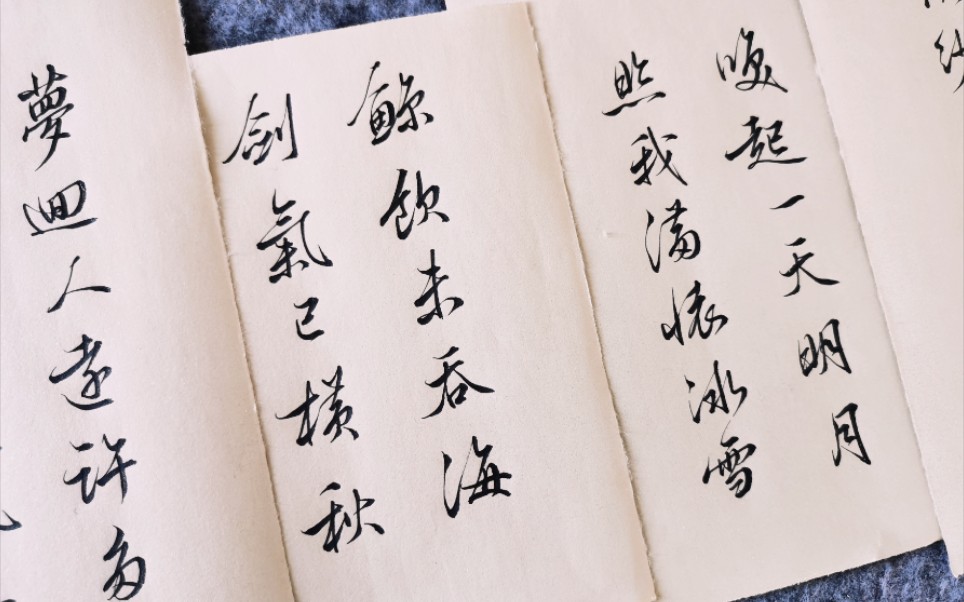 喚起一天明月
照我滿懷冰雪
鲸飲未吞海
劍氣已橫秋
夢迴人遠許多